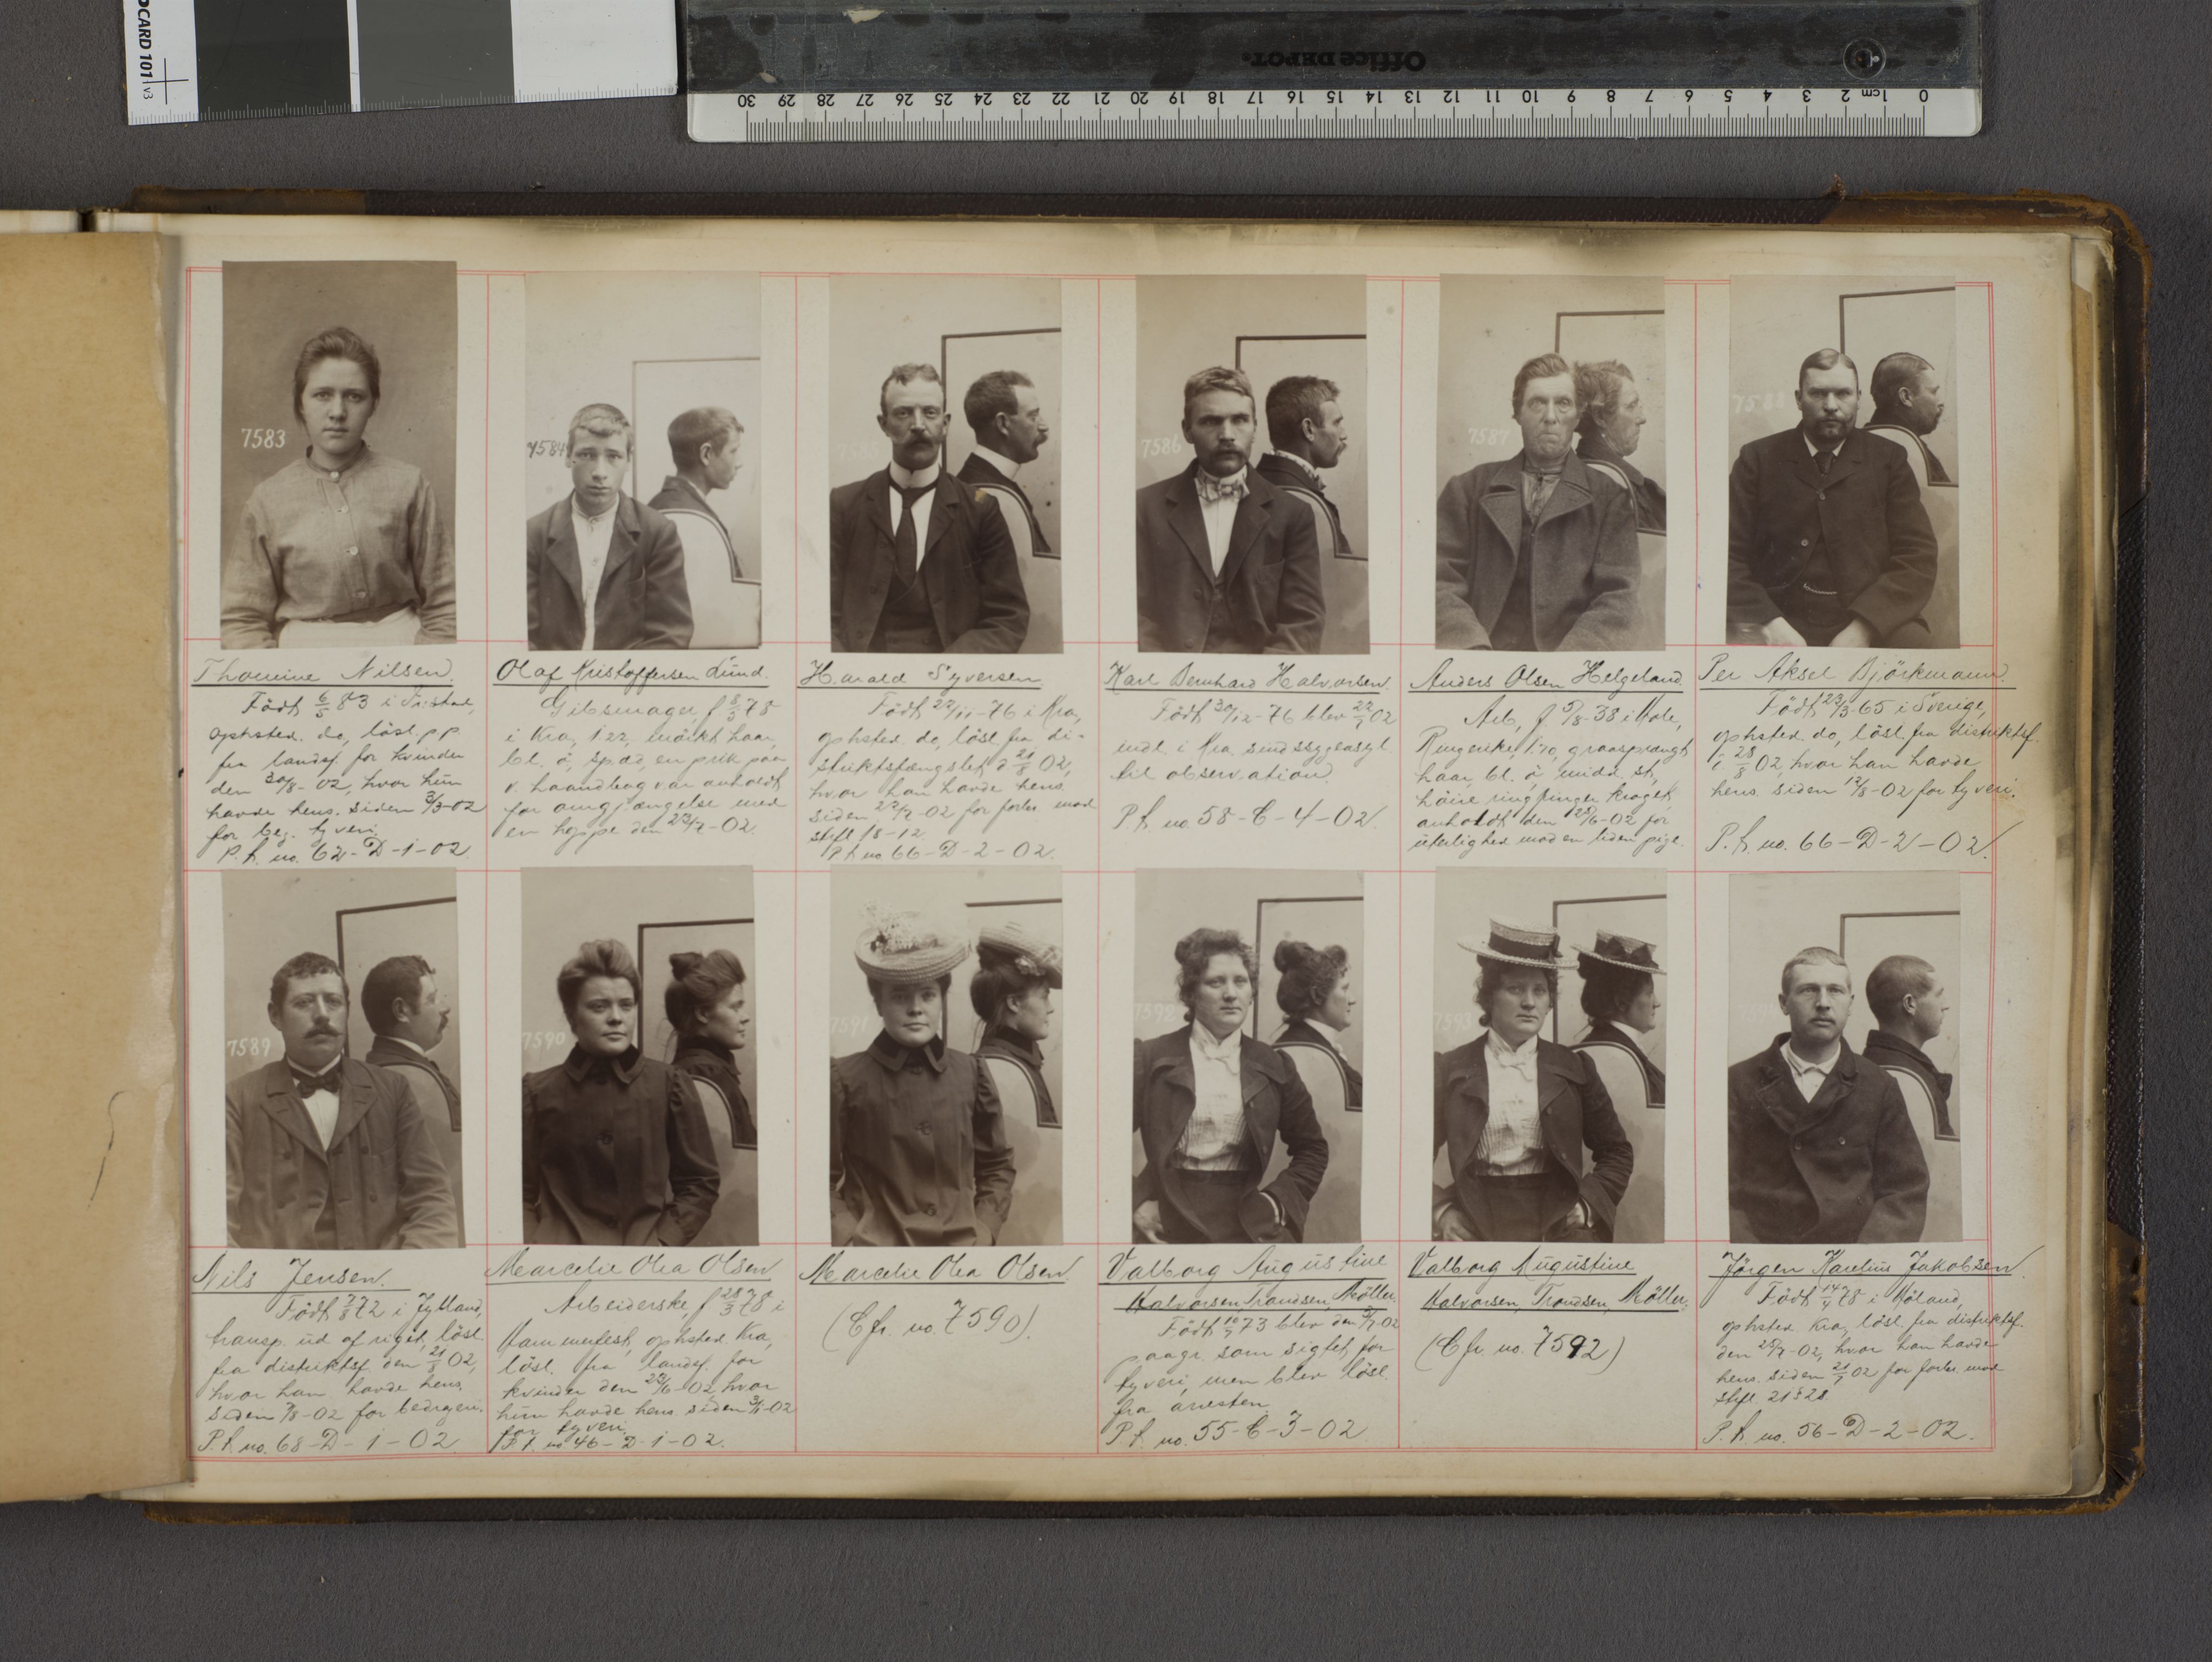 OCARD 101 v3
Office DEPOT
30 29 28 27 26 25 24 23 22 21 20 19 18 17 16 15 14 13 12 11 10 9 8 7 6 5 4 3 2 cm 1 0
7583
Thomine Nilsen.
Födt 6/5 83 i
ophsted. do, lösl. pp
fra landsf. for kvinder
den 30/8-02, hvor hun
havde hens. siden 3/3-02
for beg. tyveri.
P.f. no. 62-D-1-02
7584
Olaf Kristoffersen Lund.
Gibsmager, f 8/5 78
i Kra, 122, mörkt haar,
bl. ö, spæd, en prik paa
v. haandbag var anholdt
for omgjængelse med
en hoppe den 23/7-02.
7585
Harald Syversen
Födt 22/11-76 i Kra,
ophsted. do, lösl. fra di-
striktsfængslet d 21/8 02,
hvor han havde hens
siden 2/7-02 for forbr. mod
strfl 18-12
P.f. no 66-D-2-02.
7586
Karl Bernhard Halvorsen.
Födt 30/12-76 blev 22/7 02
indl i Kra sindssygeasyl
til observation.
P.f. no. 58-C-4-02.
7587
Anders Olsen Helgeland.
Arb, f. 5/8-38 i Hole,
Ringerike, 170, graasprængt
haar bl. ö, midd. st,
höire ringfinger kroget,
anholdt den 12/6-02 for
uterlighed mod en liden pige.
7588
Per Aksel Björkmann.
Födt 23/3-65 i Sverige,
ophsted. do, lösl fra distriktsf.
d. 28/8 02, hvor han havde
hens. siden 12/8-02 for tyveri.
P.f. no. 66-D-2-02.
7589
Nils Jensen.
Födt 7/8 72 i Jylland,
transp. ud af riget, lösl.
fra distriktsf. den 21/8 02,
hvor han havde hens.
siden 7/8-02 for bedrageri.
P.f. no. 68-D-1-02
7590
Marcelie Olea Olsen
Arbeiderske, f 28/3 78 i
Hammerfest, ophsted Kra,
lösl. fra landsf. for
kvinder den 22/6-02, hvor
hun havde hens. siden 3/1-02
for tyveri.
P.f. no 46-D-1-02.
7591
Marcelie Olea Olsen.
(Cfr. no. 7590).
7592
Valborg Augustine
Halvorsen, Trondsen, Möller.
Födt 10/7 73 blev den 5/7-02
paagr. som sigtet for
tyveri, men blev lösl.
fra arresten.
P.f. no. 55-C-3-02
7593
Valborg Augustine
Halvorsen, Trondsen, Möller.
(Cfr. no. 7592)
Jörgen Karelius Jakobsen.
Födt 14/4 78 i Höland,
ophsted. Kra, lösl. fra distriktsf.
den 25/7-02, hvor han havde
hens. siden 21/7 02 for forbr. mod
strfl. 21 § 28
P.f. no. 56-D-2-02.